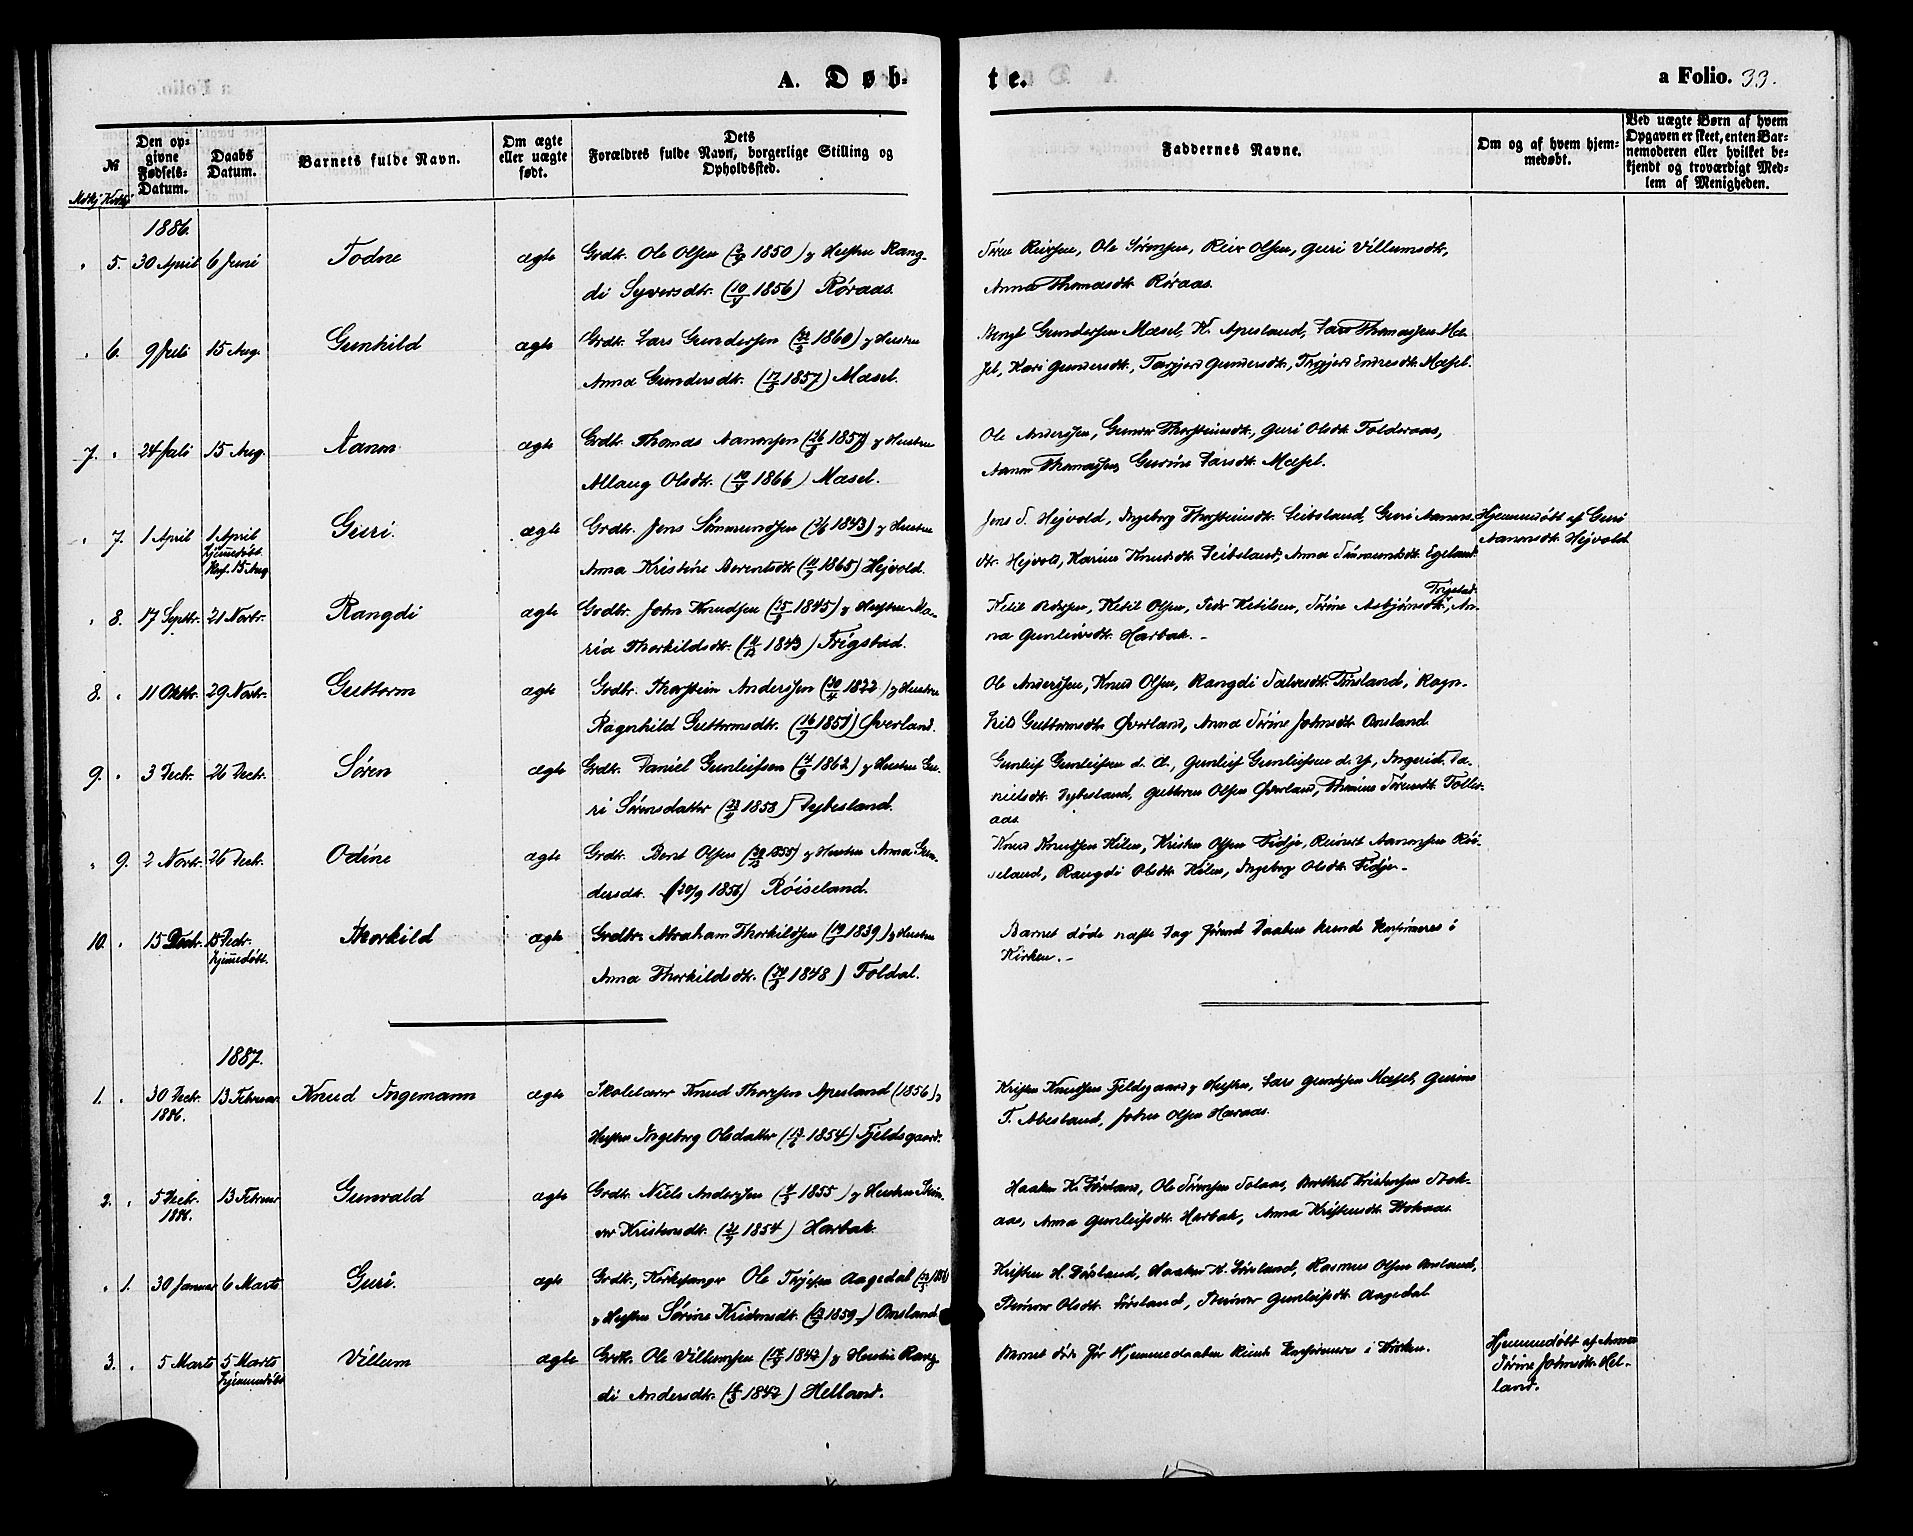 A. Døb-
te.
a Folio. 33.
№
Den op-
givne
Fødsels-
Datum.
Daabs
Datum.
Barnets fulde Navn.
Om ægte
eller uægte
født.
Dets
Forældres fulde Navn, borgerlige Stilling og
Opholdssted.
Faddernes Navne.
Om og af hvem hjem-
medøbt.
Ved uægte Børn af hvem
Opgaven er skeet, enten Bar-
nemoderen eller hvilket be-
kjendt og troværdigt Med-
lem af Menigheden.
1886.
5. 30 April 6 Juni Todne ægte Grdbr. Ole Olsen 1850) og Hustru Rang-
di Syversdtr. 1856) Røraas.
Ole Sørensen, Reier Olsen, Guri Villumsdtr,
Anna Thomasdtr Røraas.
6. 9 Juli 15 Aug. Gunhild ægte Grdbr. Lars Gundersen 1860) og Hustru
Anna Gundersdtr. 1857) Mæsel.
Bengt Gundersen Mæsel, K. Apesland, Lars Thomassen Mæ-
sel, Kari Gundersdtr., Targjerd Gundersdtr., Endresdtr. Mæsel.
7. 24 Juli 15 Aug. Aanon ægte Grdbr. Thomas Aanonsen 1857) og Hustru
Allaug Olsdtr. 1866) Mæsel.
Ole Anderssen, Gunvor Thorsteinsdtr., Guri Olsdtr Tolderaas,
Aanon Thomassen, Gurine Larsdtr. Mæsel.
7. 1 April 1 April Guri. ægte Grdbr. Jens Sømmundsen 1843) og Hustru
hjemmedøbt
Konf. 15 Aug
Anna Kristine Berentsdtr 1865) Hejvold.
Jens S. Hejvold, Ingeborg Thorsteinsdtr. Leibsland, Guri Aanons-
dtr. Hejvold, Karine Knudsdtr Leibsland, Anna Egeland.
Hjemmedøbt af Guri
Aanonsdtr Hejvold.
8. 17 Septbr. 21 Novbr. Rangdi ægte Grdbr. John Knudsen 1845) og Hustru Ma-
ria Thorkildsdtr. 1843) Trigstad.
Ketil Olsen, Peder Ketilsen, Sørine Asbjørnsdtr., An-
na Gunleivsdtr. Harbak.
8. 11 Oktbr. 29 Novbr. Guttorm ægte Grdbr. Thorstein Anderssen 1822) og Hustru
Ragnhild Guttormsdtr. 1851) Øverland.
Ole Anderssen, Knud Olsen, Rangdi Salvesdtr. Ragn-
hild Guttormsdtr. Øverland, Anna Sørine Johnsdtr. Onsland.
9. 3 Decbr. 26 Decbr. Søren ægte Grdbr. Daniel Gunleifsen 1862) og Hustru Gu-
ri Sørensdatter 1853) Dybesland.
Gunleif Gunleifsen d. Æ., Gunleif Gunleifsen d. Y., Ingerid Da-
nielsdtr. Dybesland, Guttorm Olsen Øverland, Tolder-
aas
9. 2 Novbr. 26 Decbr. Odine ægte Grdbr. Bent Olsen 1855) og Hustru Anna Gun-
dersdtr. (20/9 1856) Røiseland.
Knud Knudsen Kilen, Kristen Olsen Fidje, Reinert Aanonsen Røi-
seland, Rangdi Olsdtr. Kilen, Ingeborg Olsdtr. Fidje.
10. 15 Decbr. 15 Decbr. Thorkild ægte Grdbr. Abraham Thorkildsen 1839) og Hustru
hjemmedøbt.
Anna Thorkildsdtr. 1848) Foldal.
Barnet døde næste Dag førend Daaben kunde Konfirmeres i
Kirken.
1887.
1. 30 Decbr. 13 Februar Knud Ingemann ægte Skolelærer Knud Thorsen Apesland (1856) og
1886.
Hustru Ingeborg Olsdatter 1854) Fjeldsgaard.
Kristen Knudsen Fjeldsgaard og Hustru, Lars Gundersen Mæsel, Gurine
T. Abesland, John Olsen Haraas.
2. 5 Decbr. 13 Februar Gunvald ægte Grdbr. Niels Anderssen 1855) og Hustru Gun-
1886.
vor Kristensdtr. 1854) Harbak.
Haaken K. Ole Sørensen Berthel Kristensen Stok-
aas, Anna Gunleifsdtr. Harbak, Anna Kristensdtr. Stokaas.
1. 30 Januar 6 Marts Guri. ægte Grdbr., Kirkesanger Ole Aagedal
og Hustru Sørine Kristensdtr. 1859) Onsland.
Kristen H. Haaken K. Rasmus Olsen Onsland,
Steinvor Olsdtr. Steinvor Gunleifsdtr. Aagedal
3. 5 Marts 5 Marts Villum ægte Grdbr. Ole Villumsen 1842) og Hustru Rang-
hjemmedøbt
di Andersdtr. 1842) Helland.
Barnet døde før Hjemmedaaben kunde Konfirmeres i Kirken.
Hjemmedøbt af Anna
Sørine Johnsdtr. Hel-
land.